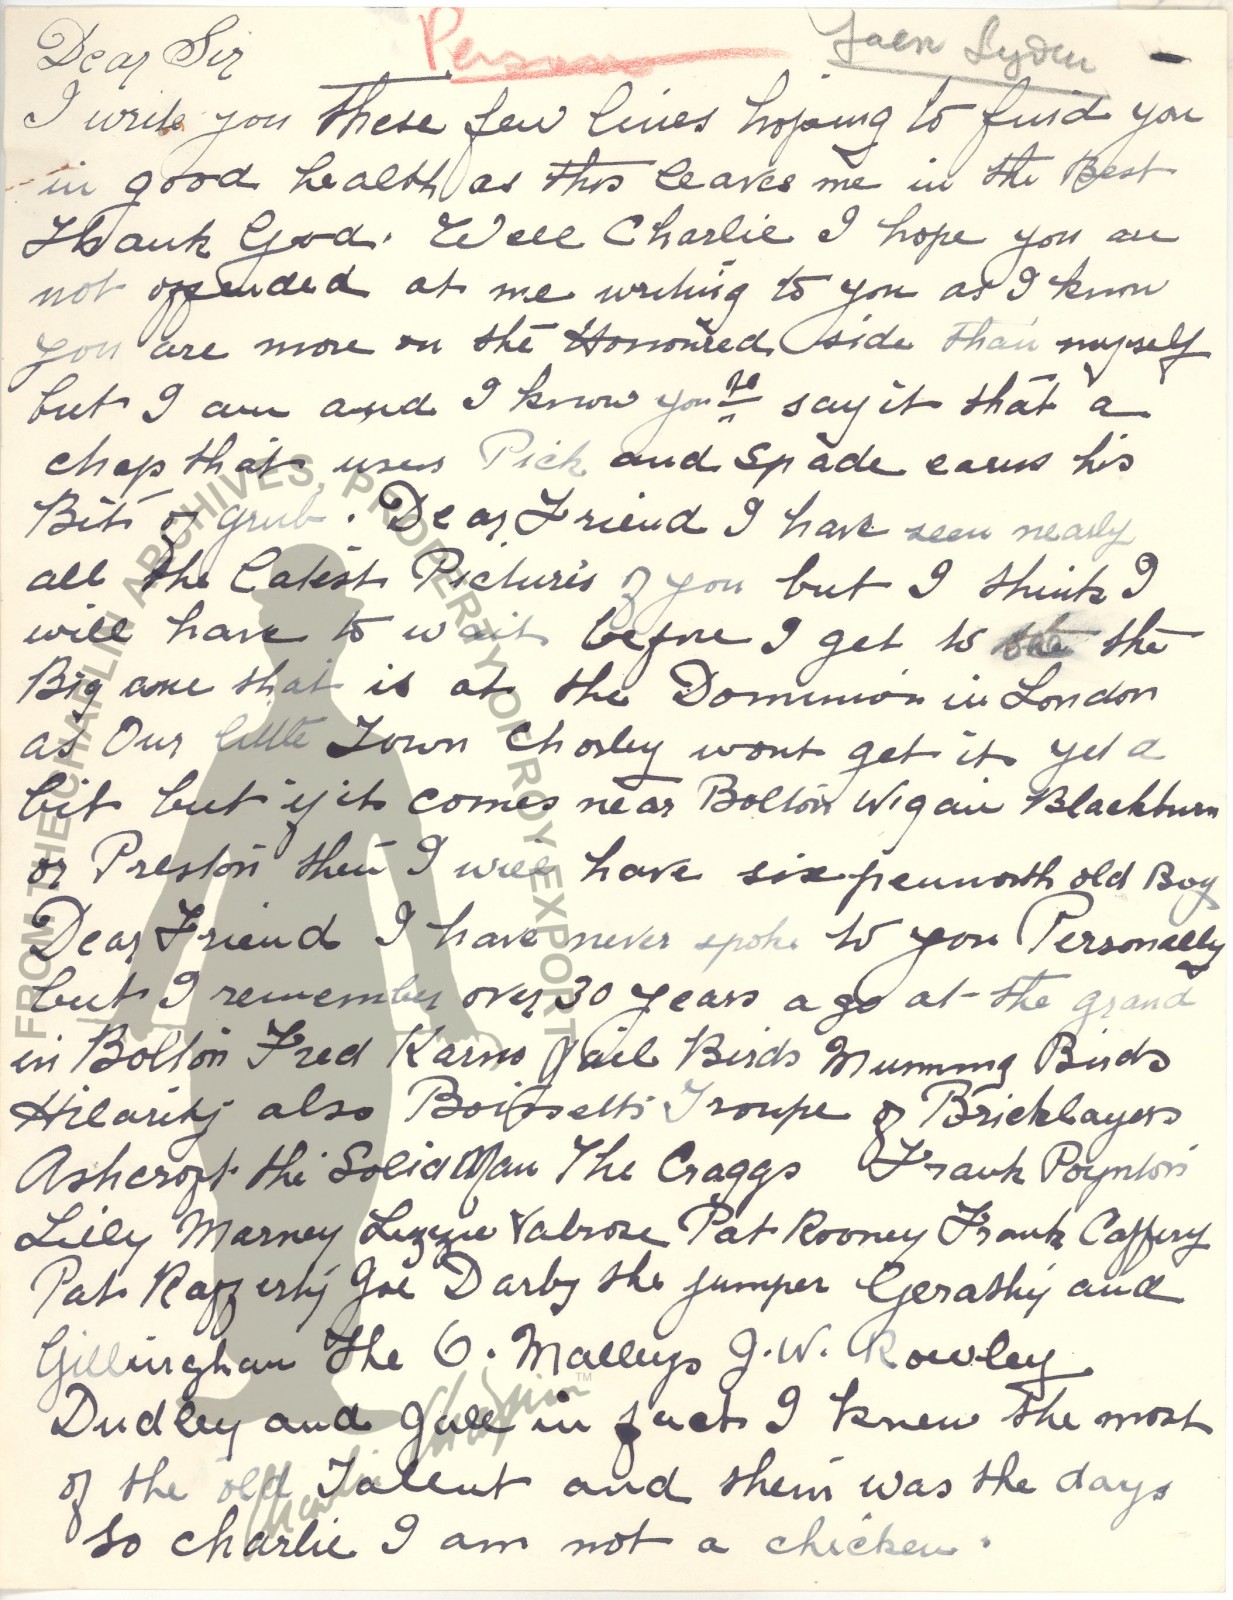 Dear Sir
Person
I write you these few lines hoping to find you
in good health as this leaves me in the Best
Thank God. Well Charlie I hope you are
not offended at me writing to you as I know
you are more on the Honoured side than myself
but I am and I know you'll say it that a
chap that uses Pick and Spade earns his
Bit of grub. Dear Friend I have seen nearly
all the latest Pictures of you but I think I
will have to wait before I get to see the
Big one that is at the Dominion in London
as Our little Town Chorley wont get it yet a
bit but if it comes near Bolton Wigan Blackburn
or Preston then I will have sixpennorth old Boy
Dear Friend I have never spoke to you Personally
but I remember over 30 years ago at the grand
in Bolton Fred Karno Jail Birds Mumming Birds
Hilarity also Boissetts Troupe of Bricklayers
Ashcroft the Solid Man The Craggs Frank Poynton
Lilly Marney Lizzie Valrose Pat Rooney Frank Caffery
Pat Rafferty Joe Darby the jumper Gerathy and
Gillinghan The O. Malleys J.W. Rowley
Dudley and Gall in fact I knew the most
of the old Talent and them was the days
So Charlie I am not a chicken.
FROM THE CHAPLIN ARCHIVES, PROPERTY OF ROY EXPORT
Charlie Chaplin
TM